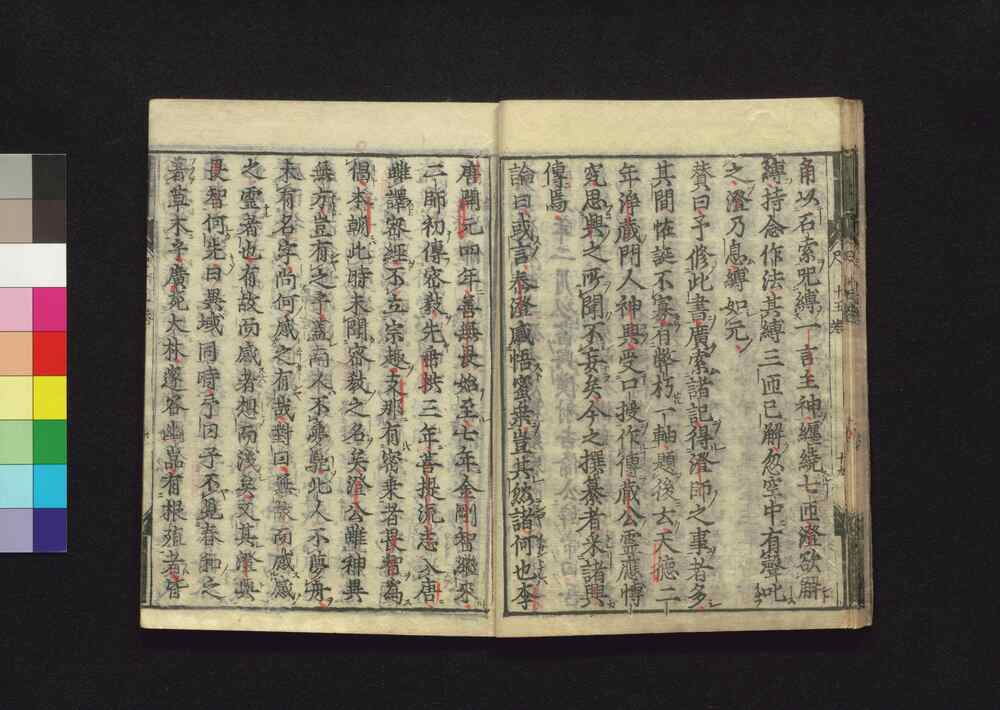 角以石索咒縛一言主神纏繞七匝澄欲解
縛持念作法其縛三匝已解忽空中有聲叱
之澄乃息縛如元
賛曰予修此書廣索諸記得澄師之事者多
其間惟誕不寡有弊朽一軸題後云天德二
年淨藏門人神興受口授作傳藏公靈應博
究思興之所聞不妄矣今之撰纂者采諸興
傳焉
論曰或言泰澄感悟蜜乘豈其然諸何也李
唐開元四年善無畏始至七年金剛智繼來
二師初傳密教先
三年菩提流志入唐
雖譯密經不立宗趣支那有密乘者畏智為
倡本朝此時未聞密教之名矣澄公雖神異
無方豈有之乎蓋而人不夢駝北人不夢舟
未有名字尚何感之有哉對曰無緣而感感
之靈者也有故而感者想而淺矣又其澄與
畏智何先曰異域同時乎曰子不見春和之
著草木乎廣苑大林邃谷幽嵓有根殖者皆
十五卷